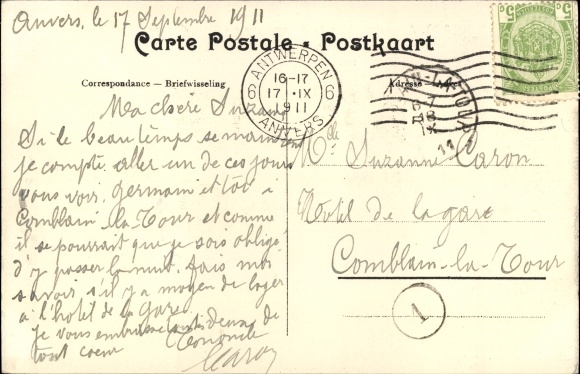 Anvers, le 17 Septembre 1911
Carte Postale - Postkaart
Correspondance — Briefwisseling
Adresse
ANTWERPEN
6 16-17 6
17 IX
1911
ANVERS
5c 5c
Ma chère Suzanne
Si le beau temps se maintient
je compte aller un de ces jours
vous voir, Germain et toi à
Comblain-la-Tour et comme
il se pourrait que je sois obligé
d'y passer la nuit. fais moi
savoir s'il y a moyen de loger
à l'hôtel de la gare
Je vous embrasse tous deux de
tout coeur
Caron
Mlle Suzanne Caron
Hotel de la gare
Comblain-la-Tour
1